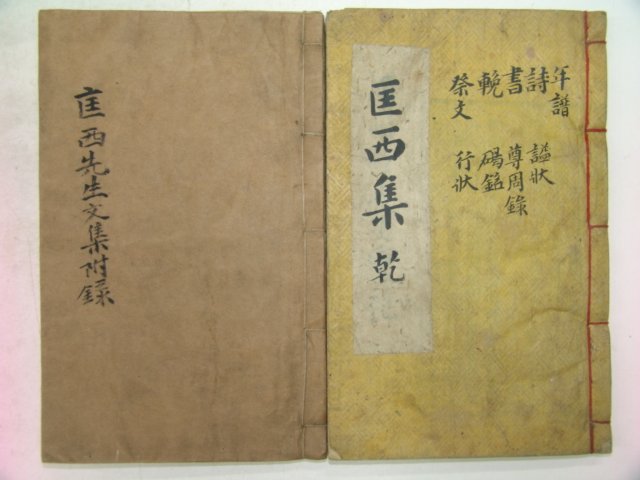 匡西先生文集附錄
匡西集 乾
年譜
詩 諡狀
書 尊周錄
輓 碣銘
祭文 行狀